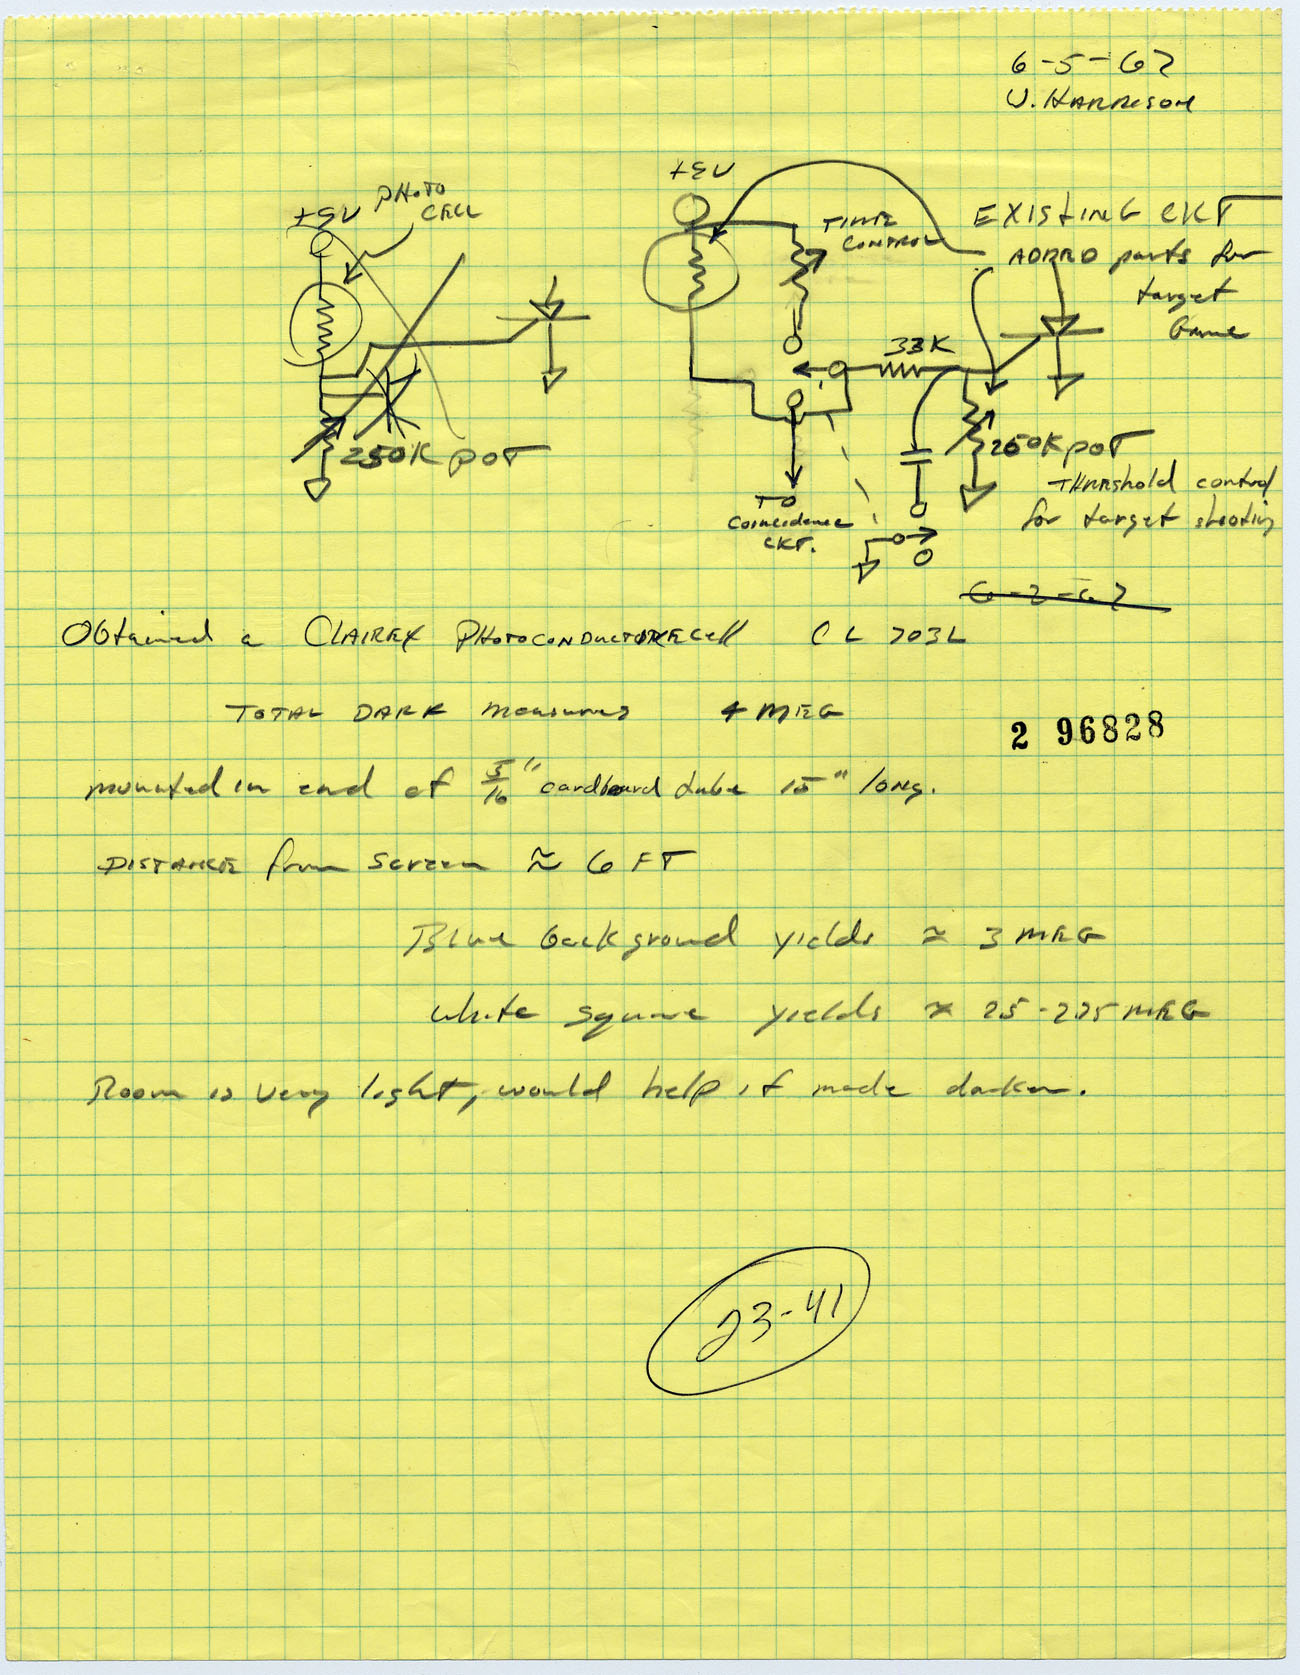 6-5-67
W. HARRISON
+9V
PHOTO
CELL
250K POT
+9V
TIME
CONTROL
EXISTING CKT
ADDED parts for
target
Game
33K
250K POT
THRESHOLD control
for target shooting
TO
Coincidence
CKT.
6-2-67
Obtained a CLAIREX PHOTOCONDUCTIVE Cell CL 703L
TOTAL DARK measures 4 MEG
2 96828
mounted in end of 5/16" cardboard tube 15" long.
DISTANCE from screen ≈ 6 FT
Blue background yields ≈ 3 MEG
white square yields ≈ 25-275 MEG
Room is very light, would help if made darker.
23-41